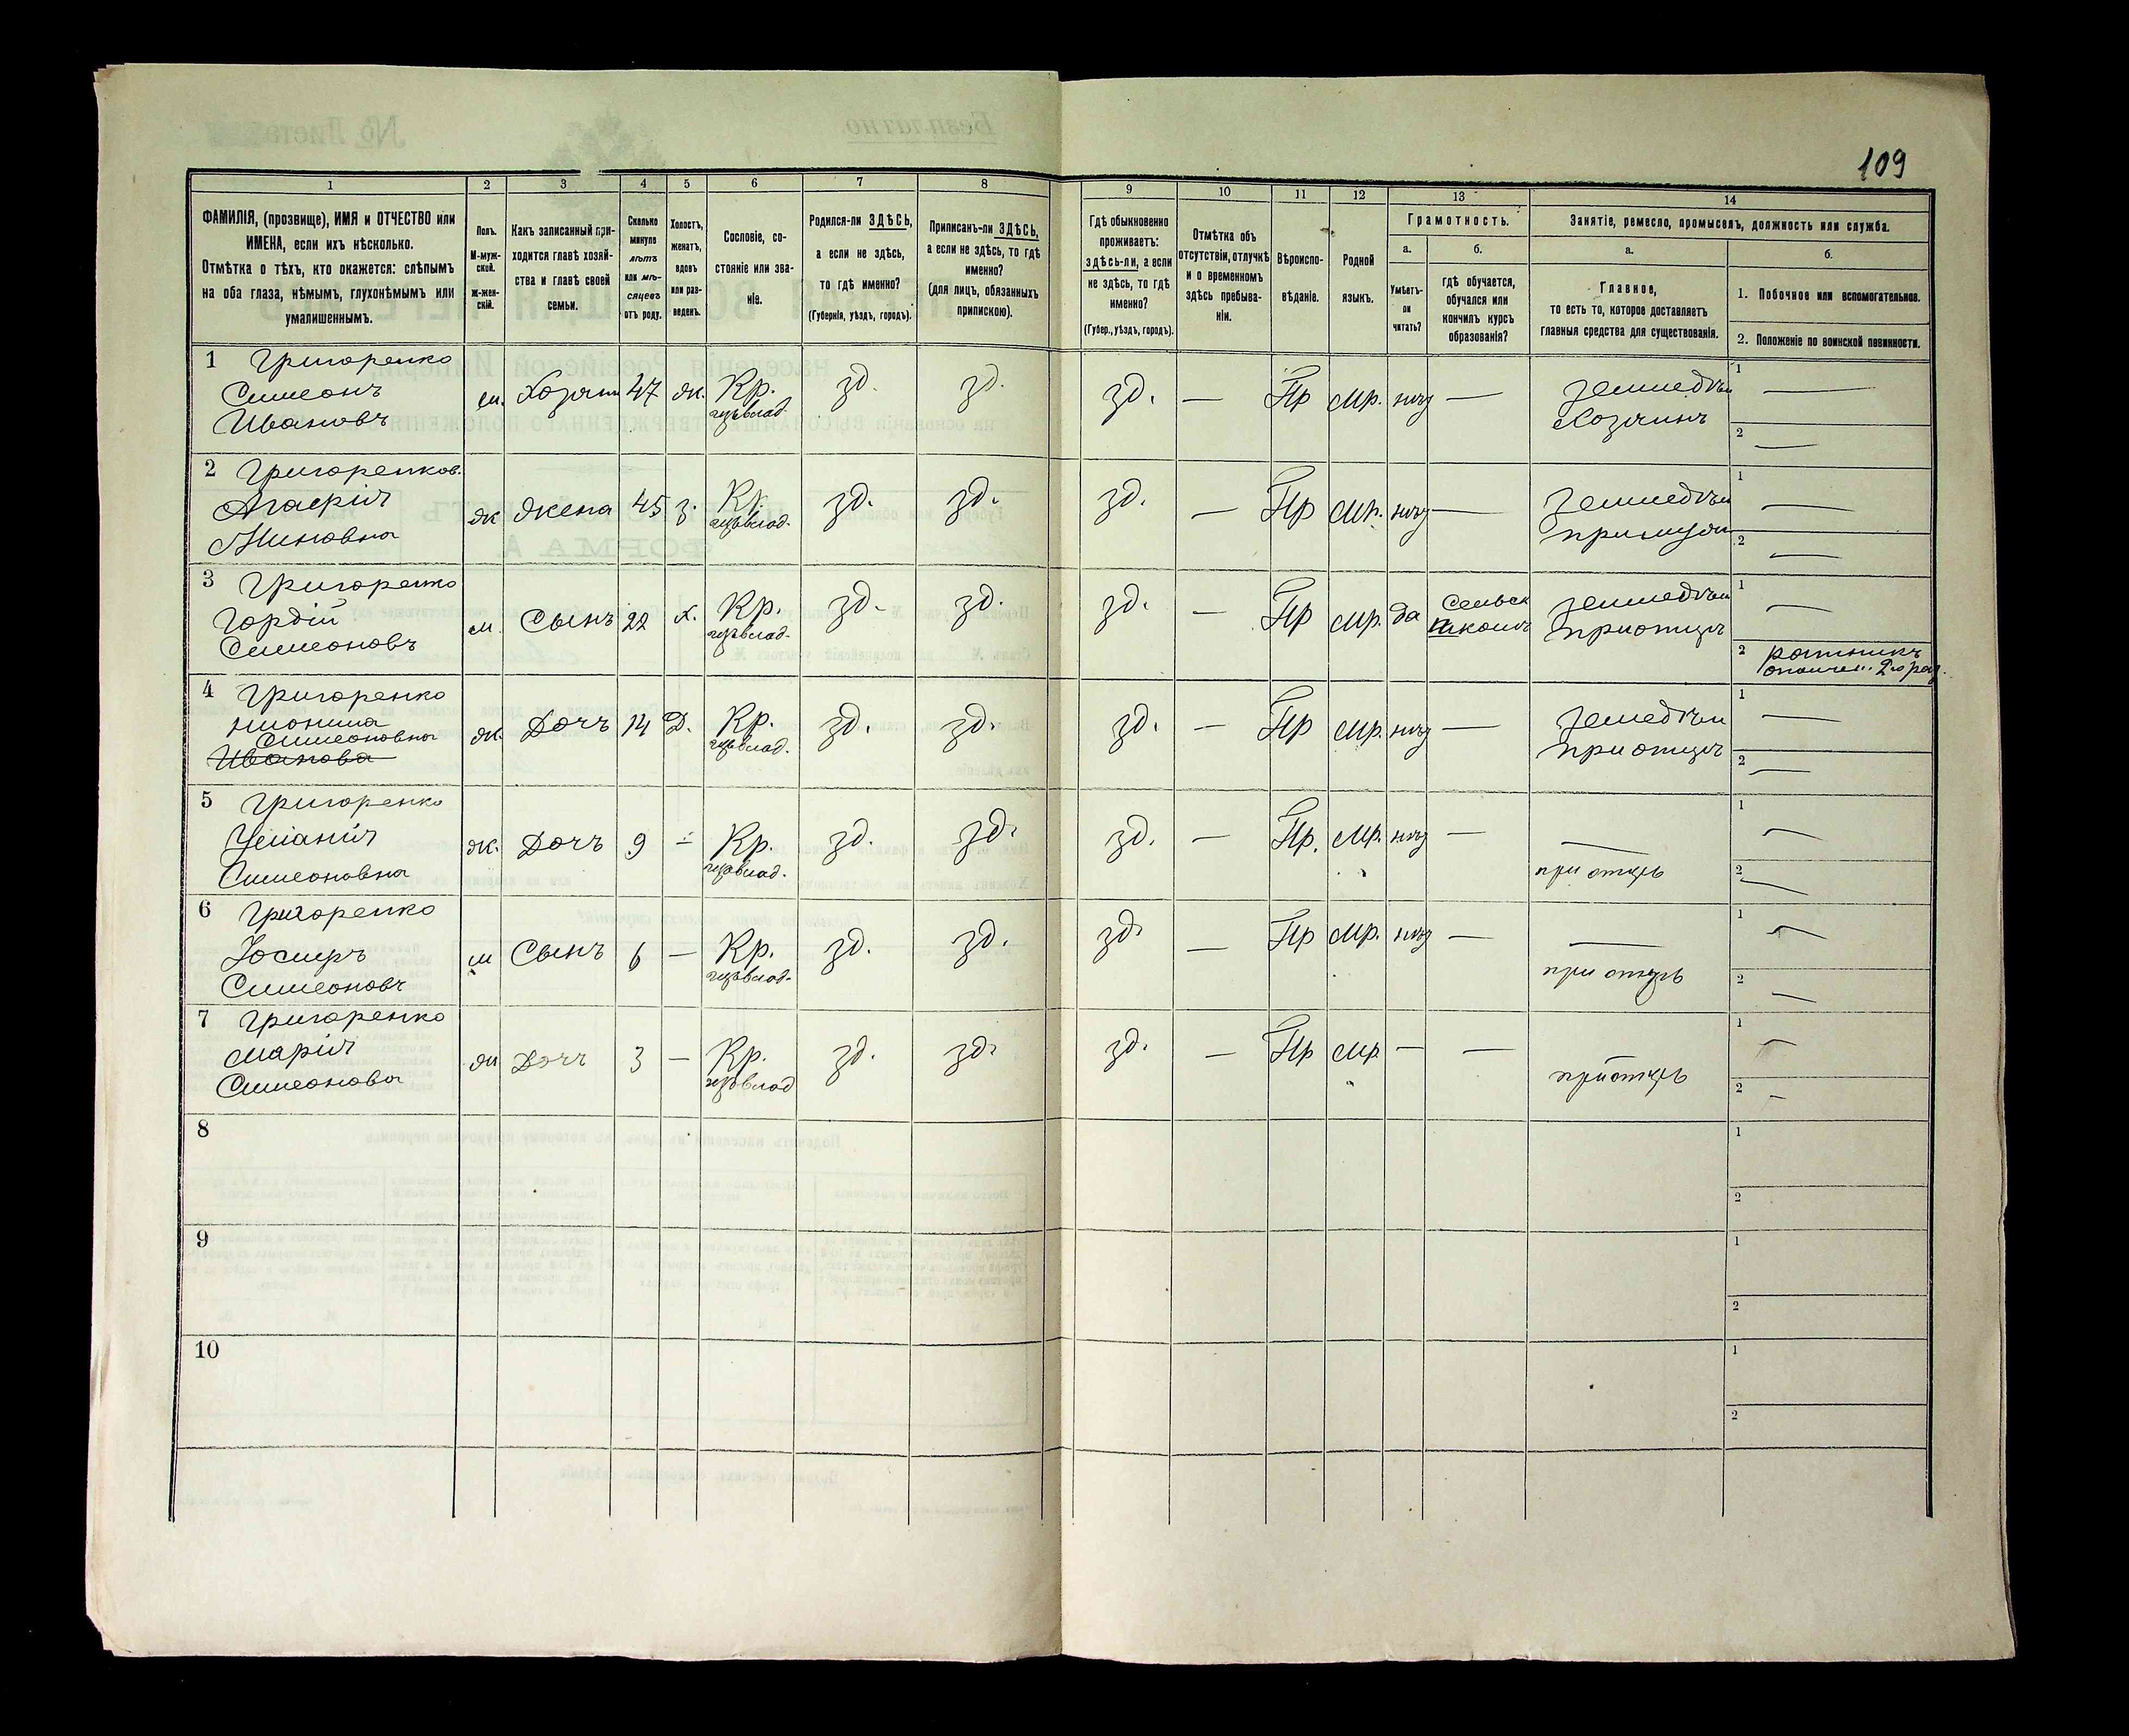 109
1 2 3 4 5 6 7 8 9 10 11 12 13 14
ФАМИЛІЯ, (прозвище), ИМЯ и ОТЧЕСТВО или
ИМЕНА, если ихъ нѣсколько.
Отмѣтка о тѣхъ, кто окажется: слѣпымъ
на оба глаза, нѣмымъ, глухонѣмымъ или
умалишеннымъ.
Полъ.
М-муж-
ской.
Ж-жен-
скій.
Какъ записанный при-
ходится главѣ хозяй-
ства и главѣ своей
семьи.
Сколько
минуло
лѣтъ
или мѣ-
сяцевъ
отъ роду.
Холостъ,
женатъ,
вдовъ
или раз-
веденъ.
Сословіе, со-
стояніе или зва-
ніе.
Родился-ли ЗДѢСЬ,
а если не здѣсь,
то гдѣ именно?
(Губернія, уѣздъ, городъ).
Приписанъ-ли ЗДѢСЬ,
а если не здѣсь, то гдѣ
именно?
(для лицъ, обязанныхъ
припискою).
Гдѣ обыкновенно
проживаетъ:
здѣсь-ли, а если
не здѣсь, то гдѣ
именно?
(Губер., уѣздъ, городъ).
Отмѣтка объ
отсутствіи, отлучкѣ
и о временномъ
здѣсь пребыва-
ніи.
Вѣроиспо-
вѣданіе.
Родной
языкъ.
Грамотность.
а.
Умѣетъ-
ли
читать?
б.
гдѣ обучается,
обучался или
кончилъ курсъ
образованія?
Занятіе, ремесло, промыселъ, должность или служба.
а.
Главное,
то есть то, которое доставляетъ
главныя средства для существованія.
б.
1. Побочное или вспомогательное.
2. Положеніе по воинской повинности.
1 Григоренко
Симеонъ
Ивановъ
м. Хозяин 47 ж. Кр. зд. зд. зд. — Пр мр. нѣт — 1 —
Хозяинъ
2 —
2 Григоренков.
Агафія
ж жена 45 з. Кр. зд. зд. зд. — Пр мр. нѣт — 1 —
2 —
3 Григоренко
Гордій
Симеоновъ
м. Сынъ 22 х. Кр. зд. зд. зд. — Пр мр. да Сельск
школѣ
при отцѣ
1 —
2 ратникъ
ополчен. 2го раз.
4 Григоренко
Симеоновна
Иванова
ж. Дочь 14 Д. Кр. зд. зд. зд. — Пр мр. нѣт — 1 —
при отцѣ
2 —
5 Григоренко
Симеоновна
ж. Дочь 9 — Кр. зд. зд. зд. — Пр. мр. нѣт — — 1 —
при отцѣ
2 —
6 Григоренко
Симеоновъ
м Сынъ 6 — Кр. зд. зд. зд. — Пр мр. нѣт — — 1 —
при отцѣ
2 —
7 Григоренко
Марія
Симеонова
ж Дочь 3 — Кр. зд. зд. зд. — Пр мр — — — 1 —
при отцѣ
2 —
8 1
2
9 1
2
10 1
2